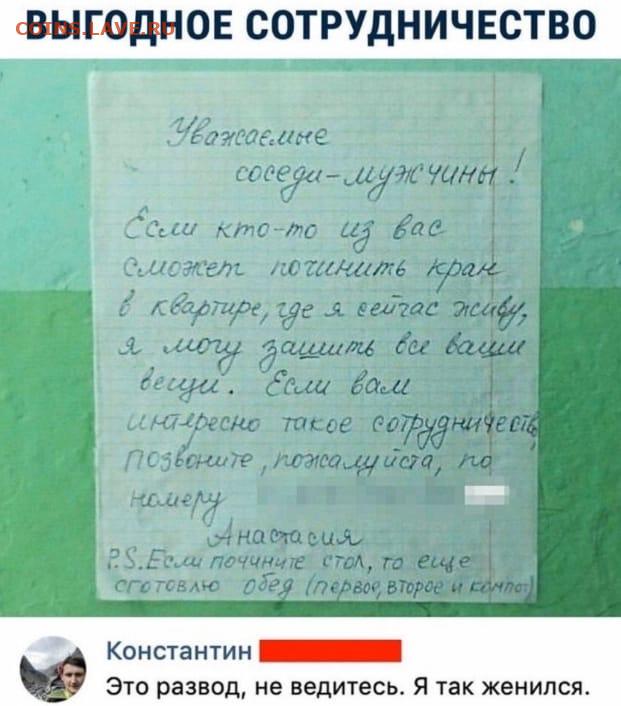 ВЫГОДНОЕ СОТРУДНИЧЕСТВО
COINS.LAVE.RU
Уважаемые
соседи-мужчины!
Если кто-то из вас
сможет починить кран
в квартире, где я сейчас живу,
я могу зашить все ваши
вещи. Если вам
интересно такое сотрудничество,
позвоните, пожалуйста, по
номеру
Анастасия
P.S. Если почините стол, то еще
сготовлю обед (первое, второе и компот)
Константин
Это развод, не ведитесь. Я так женился.